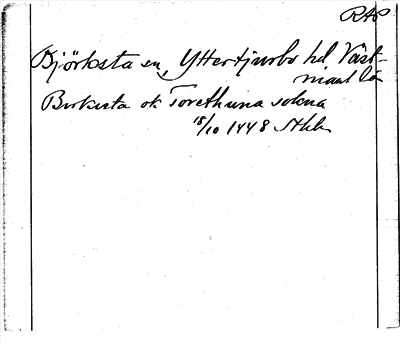 RAP
Björksta sn, Yttertjurbo hd, Väst-
manl. län
Birkesta ok Torethuna sokna
18/10 1448 Sthlm